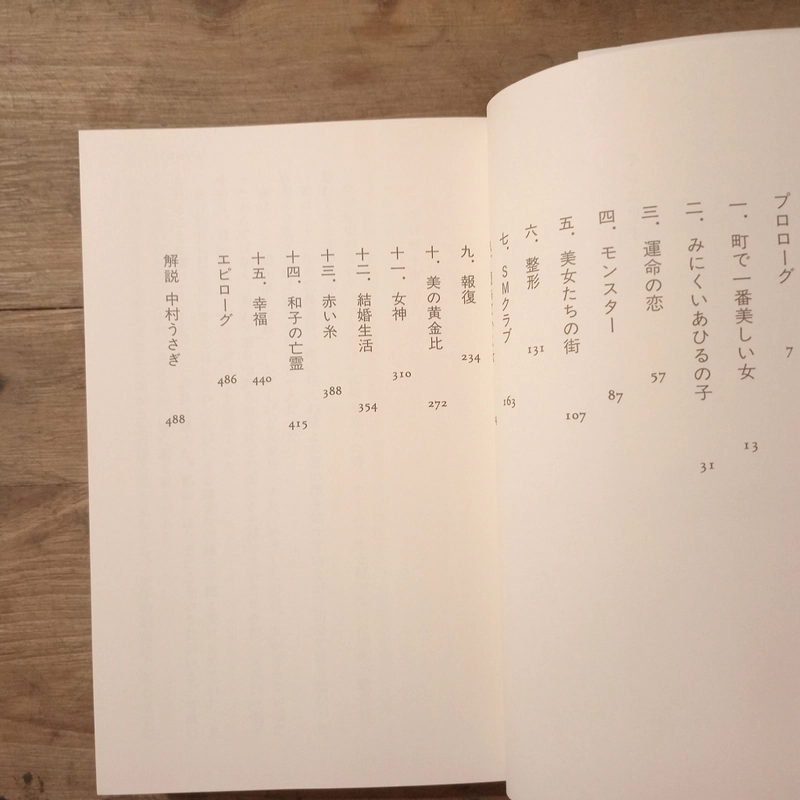 プロローグ 7
一．町で一番美しい女 13
二．みにくいあひるの子 31
三．運命の恋 57
四．モンスター 87
五．美女たちの街 107
六．整形 131
七．SMクラブ 163
九．報復 234
十．美の黄金比 272
十一．女神 310
十二．結婚生活 354
十三．赤い糸 388
十四．和子の亡霊 415
十五．幸福 440
エピローグ 486
解説 中村うさぎ 488